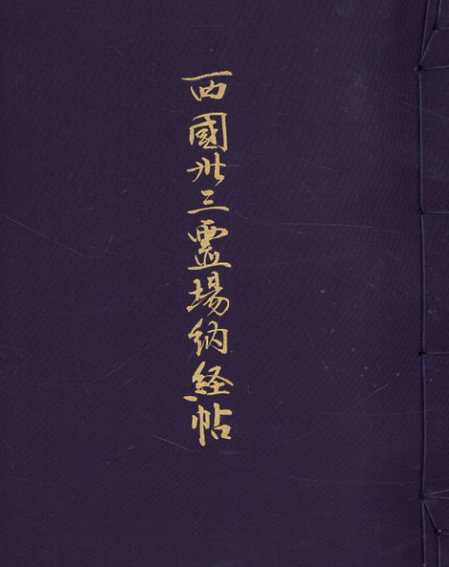 西國卅三霊場納経帖